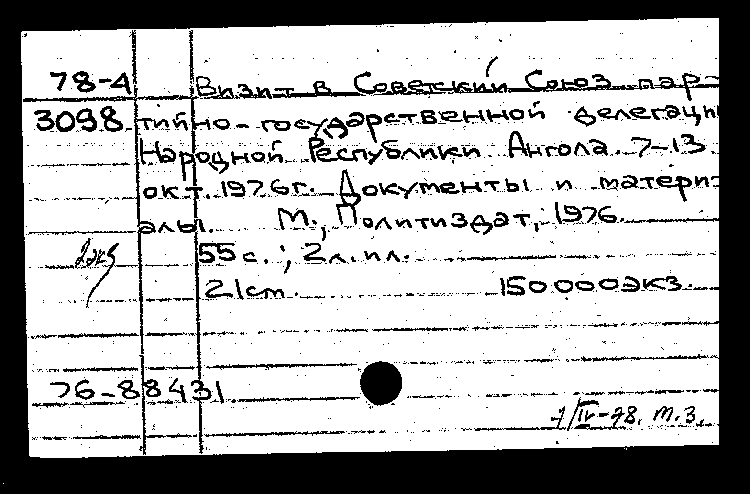 78-4 Визит в Советский Союз пар-
3098 тийно-государственной делегации
Народной Республики Ангола. 7-13
окт. 1976г. Документы и матери-
алы. М., Политиздат, 1976.
55 с.; 2 л. ил.
2экз
21см. 150000экз.
76-88431
1/IV-78. т.з.